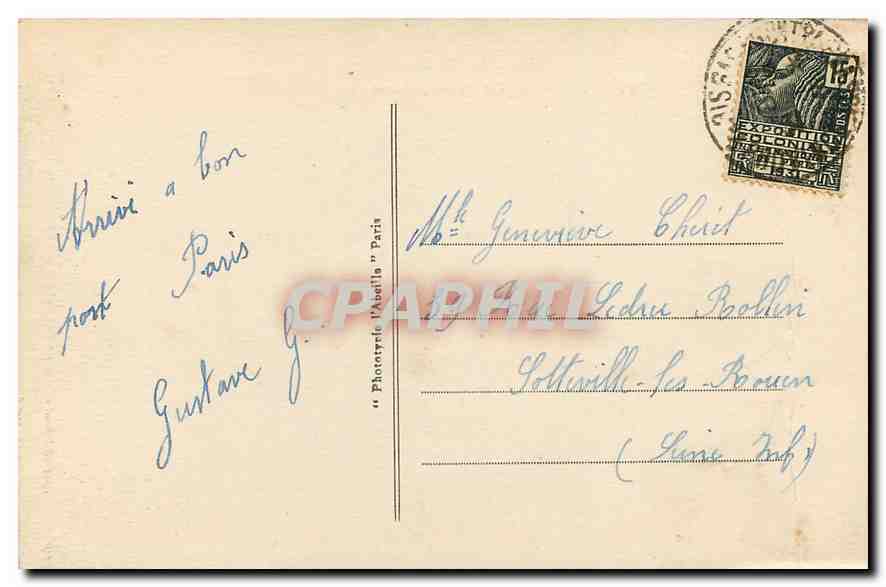 Arrivé a bon
port Paris
Gustave G.
" Phototypie l'Abeille " Paris
15c
POSTES
EXPOSITION
COLONIALE
INTERNATIONALE
PARIS
1931
Mlle Geneviève Cheret
39 Rue Ledru Rollin
Sotteville-les-Rouen
(Seine Inf)
CPAPHIL